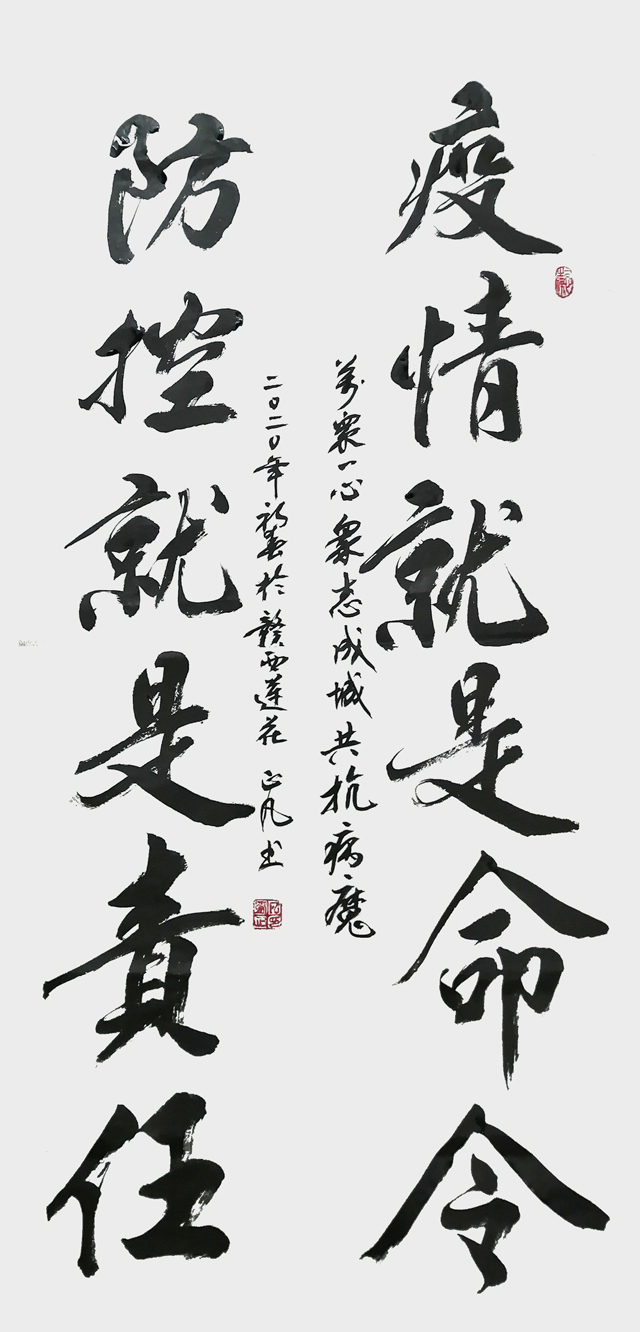 疫情就是命令
萬眾一心眾志成城共抗病魔
防控就是責任
二〇二〇年初春於贛西蓮花 正凡书